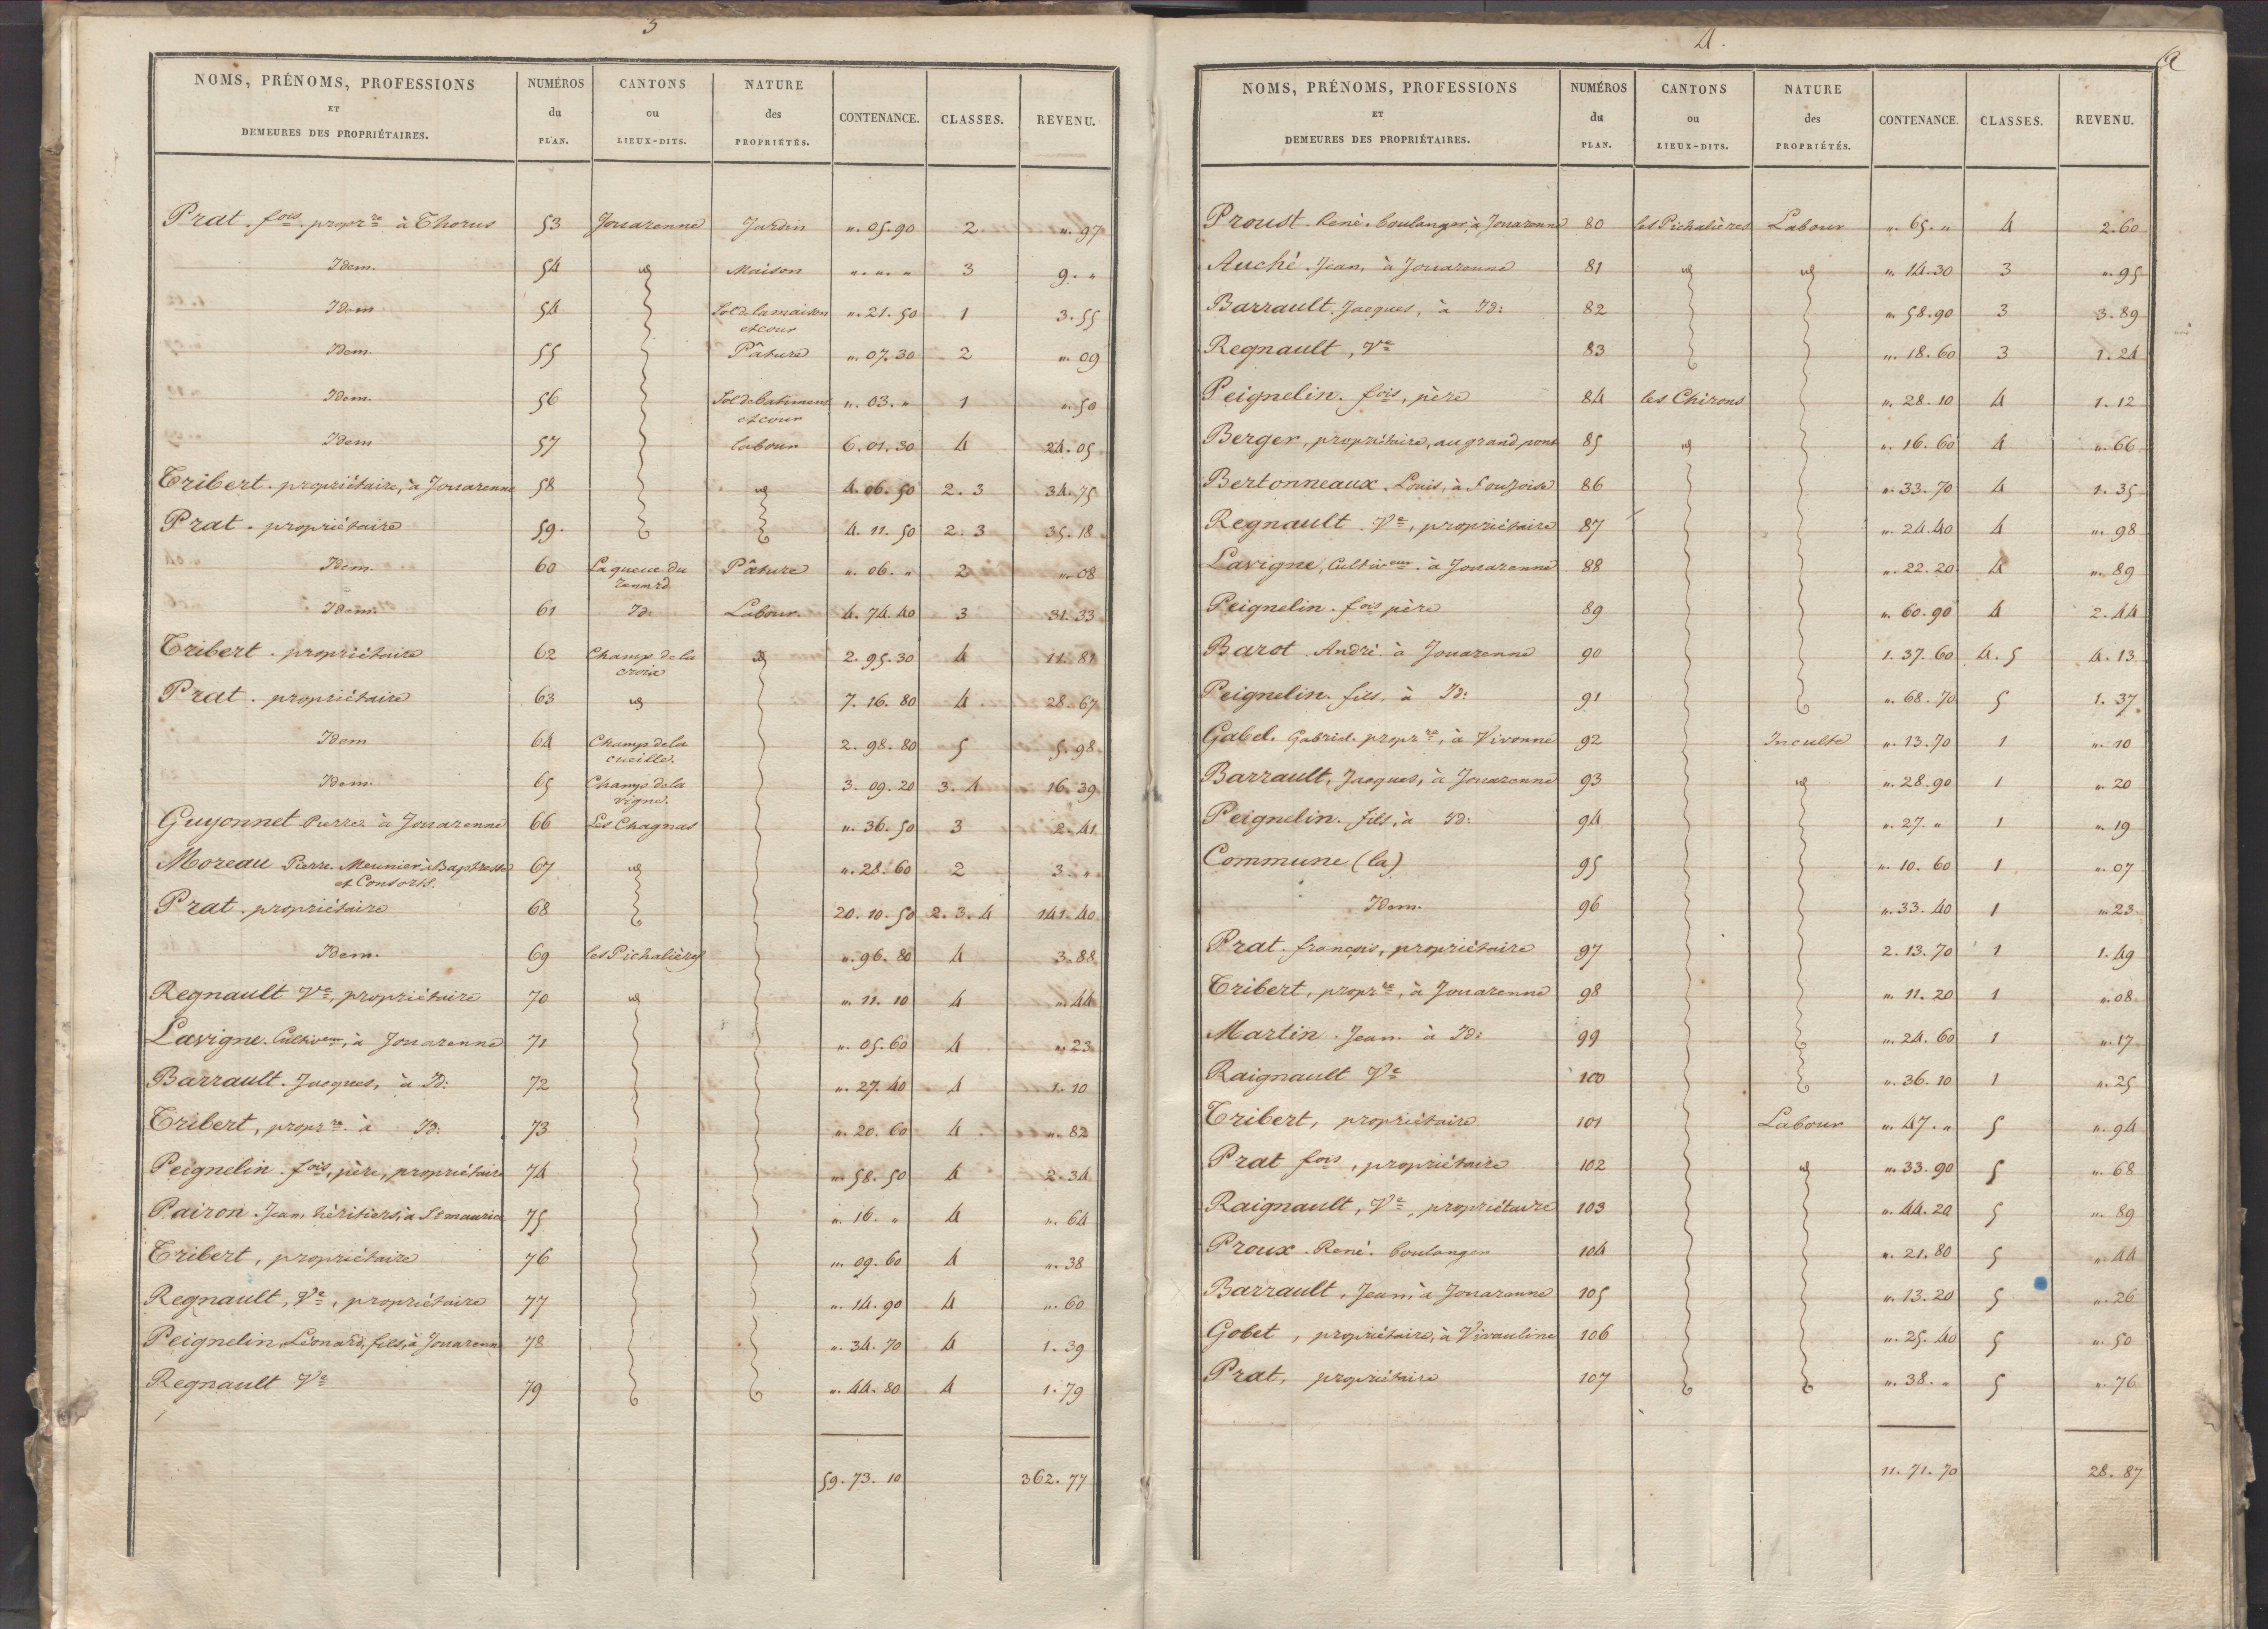 3
NOMS, PRÉNOMS, PROFESSIONS ET DEMEURES DES PROPRIÉTAIRES. NUMÉROS du PLAN. CANTONS ou LIEUX-DITS. NATURE des PROPRIÉTÉS. CONTENANCE. CLASSES. REVENU.
Prat. fois. proprre à Thorus 53 Jouarenne Jardin ". 05. 90 2 ". 97
Idem. 54 id Maison ". ". " 3 9. "
Idem 54 Sol de la maison et cour ". 21. 50 1 3. 55
Idem. 55 Pâture ". 07. 30 2 ". 09
Idem. 56 Sol de batiment et cour ". 03. " 1 ". 50
Idem 57 labour 6. 01. 30 4 24. 05
Tribert. propriétaire, à Jouarenne 58 id 4. 06. 50 2. 3 34. 75
Prat. propriétaire 59. 4. 11. 50 2. 3 35. 18
Idem. 60 La queue du renard Pâture ". 06. " 2 ". 08
Idem. 61 Id. Labour. 4. 74. 40 3 31. 33
Tribert. propriétaire 62 Champ de la croix id 2. 95. 30 4 11. 81
Prat. propriétaire 63 id 7. 16. 80 4 28. 67
Idem 64 Champ de la cueille. 2. 98. 80 5 5. 98
Idem. 65 Champ de la vigne. 3. 09. 20 3. 4 16. 39
Guyonnet Pierre. à Jouarenne 66 Les Chagnas ". 36. 50 3 2. 41
Moreau Pierre. Meunier à Baptresse et Consorts. 67 id ". 28. 60 2 3. "
Prat. propriétaire 68 20. 10. 50 2. 3. 4 141. 40
Idem. 69 les Pichalières ". 96. 80 4 3. 88
Regnault Ve, propriétaire 70 id ". 11. 10 4 ". 44
Lavigne. Cultiveur, à Jouarenne 71 ". 05. 60 4 ". 23
Barrault. Jacques, à Id: 72 ". 27. 40 4 1. 10
Tribert, proprre. à Id: 73 ". 20. 60 4 ". 82
Peignelin. fois, père, propriétaire 74 ". 58. 50 4 2. 34
Pairon. Jean, héritiers, à St maurice 75 ". 16. " 4 ". 64
Tribert, propriétaire 76 ". 09. 60 4 ". 38
Regnault, Ve, propriétaire 77 ". 14. 90 4 ". 60
Peignelin, Léonard, fils, à Jouarenne 78 ". 34. 70 4 1. 39
Regnault Ve 79 ". 44. 80 4 1. 79
59. 73. 10 362. 77
4.
NOMS, PRÉNOMS, PROFESSIONS ET DEMEURES DES PROPRIÉTAIRES. NUMÉROS du PLAN. CANTONS ou LIEUX-DITS. NATURE des PROPRIÉTÉS. CONTENANCE. CLASSES. REVENU.
Proust. René. boulanger, à Jouarenne 80 les Pichalières Labour ". 65. " 4 2. 60
Auché. Jean, à Jouarenne 81 id id ". 14. 30 3 ". 95
Barrault. Jacques, à Id: 82 ". 58. 90 3 3. 89
Regnault, Ve 83 ". 18. 60 3 1. 24
Peignelin. fois, père 84 les Chirons ". 28. 10 4 1. 12
Berger, propriétaire, au grand pont 85 id ". 16. 60 4 ". 66
Bertonneaux. Louis, à 86 ". 33. 70 4 1. 35
Regnault. Ve, propriétaire 87 ". 24. 40 4 ". 98
Lavigne, Cultiveur. à Jouarenne 88 ". 22. 20 4 ". 89
Peignelin. fois père 89 ". 60. 90 4 2. 44
Barot André à Jouarenne 90 1. 37. 60 4. 5 4. 13
Peignelin. fils, à Id: 91 ". 68. 70 5 1. 37
Gabel. Gabriel. proprre, à Vivonne 92 Inculte ". 13. 70 1 ". 10
Barrault, Jacques, à Jouarenne 93 id ". 28. 90 1 ". 20
Peignelin. fils, à Id: 94 ". 27. " 1 ". 19
Commune (la) 95 ". 10. 60 1 ". 07
Idem. 96 ". 33. 40 1 ". 23
Prat. françois, propriétaire 97 2. 13. 70 1 1. 49
Tribert, proprre, à Jouarenne 98 ". 11. 20 1 ". 08
Martin. Jean. à Id: 99 ". 24. 60 1 ". 17
Raignault Ve 100 ". 36. 10 1 ". 25
Tribert, propriétaire 101 Labour ". 47. " 5 ". 94
Prat fois, propriétaire 102 id ". 33. 90 5 ". 68
Raignault, Ve, propriétaire 103 ". 44. 20 5 ". 89
Proux. René. boulanger 104 ". 21. 80 5 ". 44
Barrault, Jean, à Jouarenne 105 ". 13. 20 5 ". 26
Gobet, propriétaire, à Vivauline 106 ". 25. 40 5 ". 50
Prat, propriétaire 107 ". 38. " 5 ". 76
11. 71. 70 28. 87